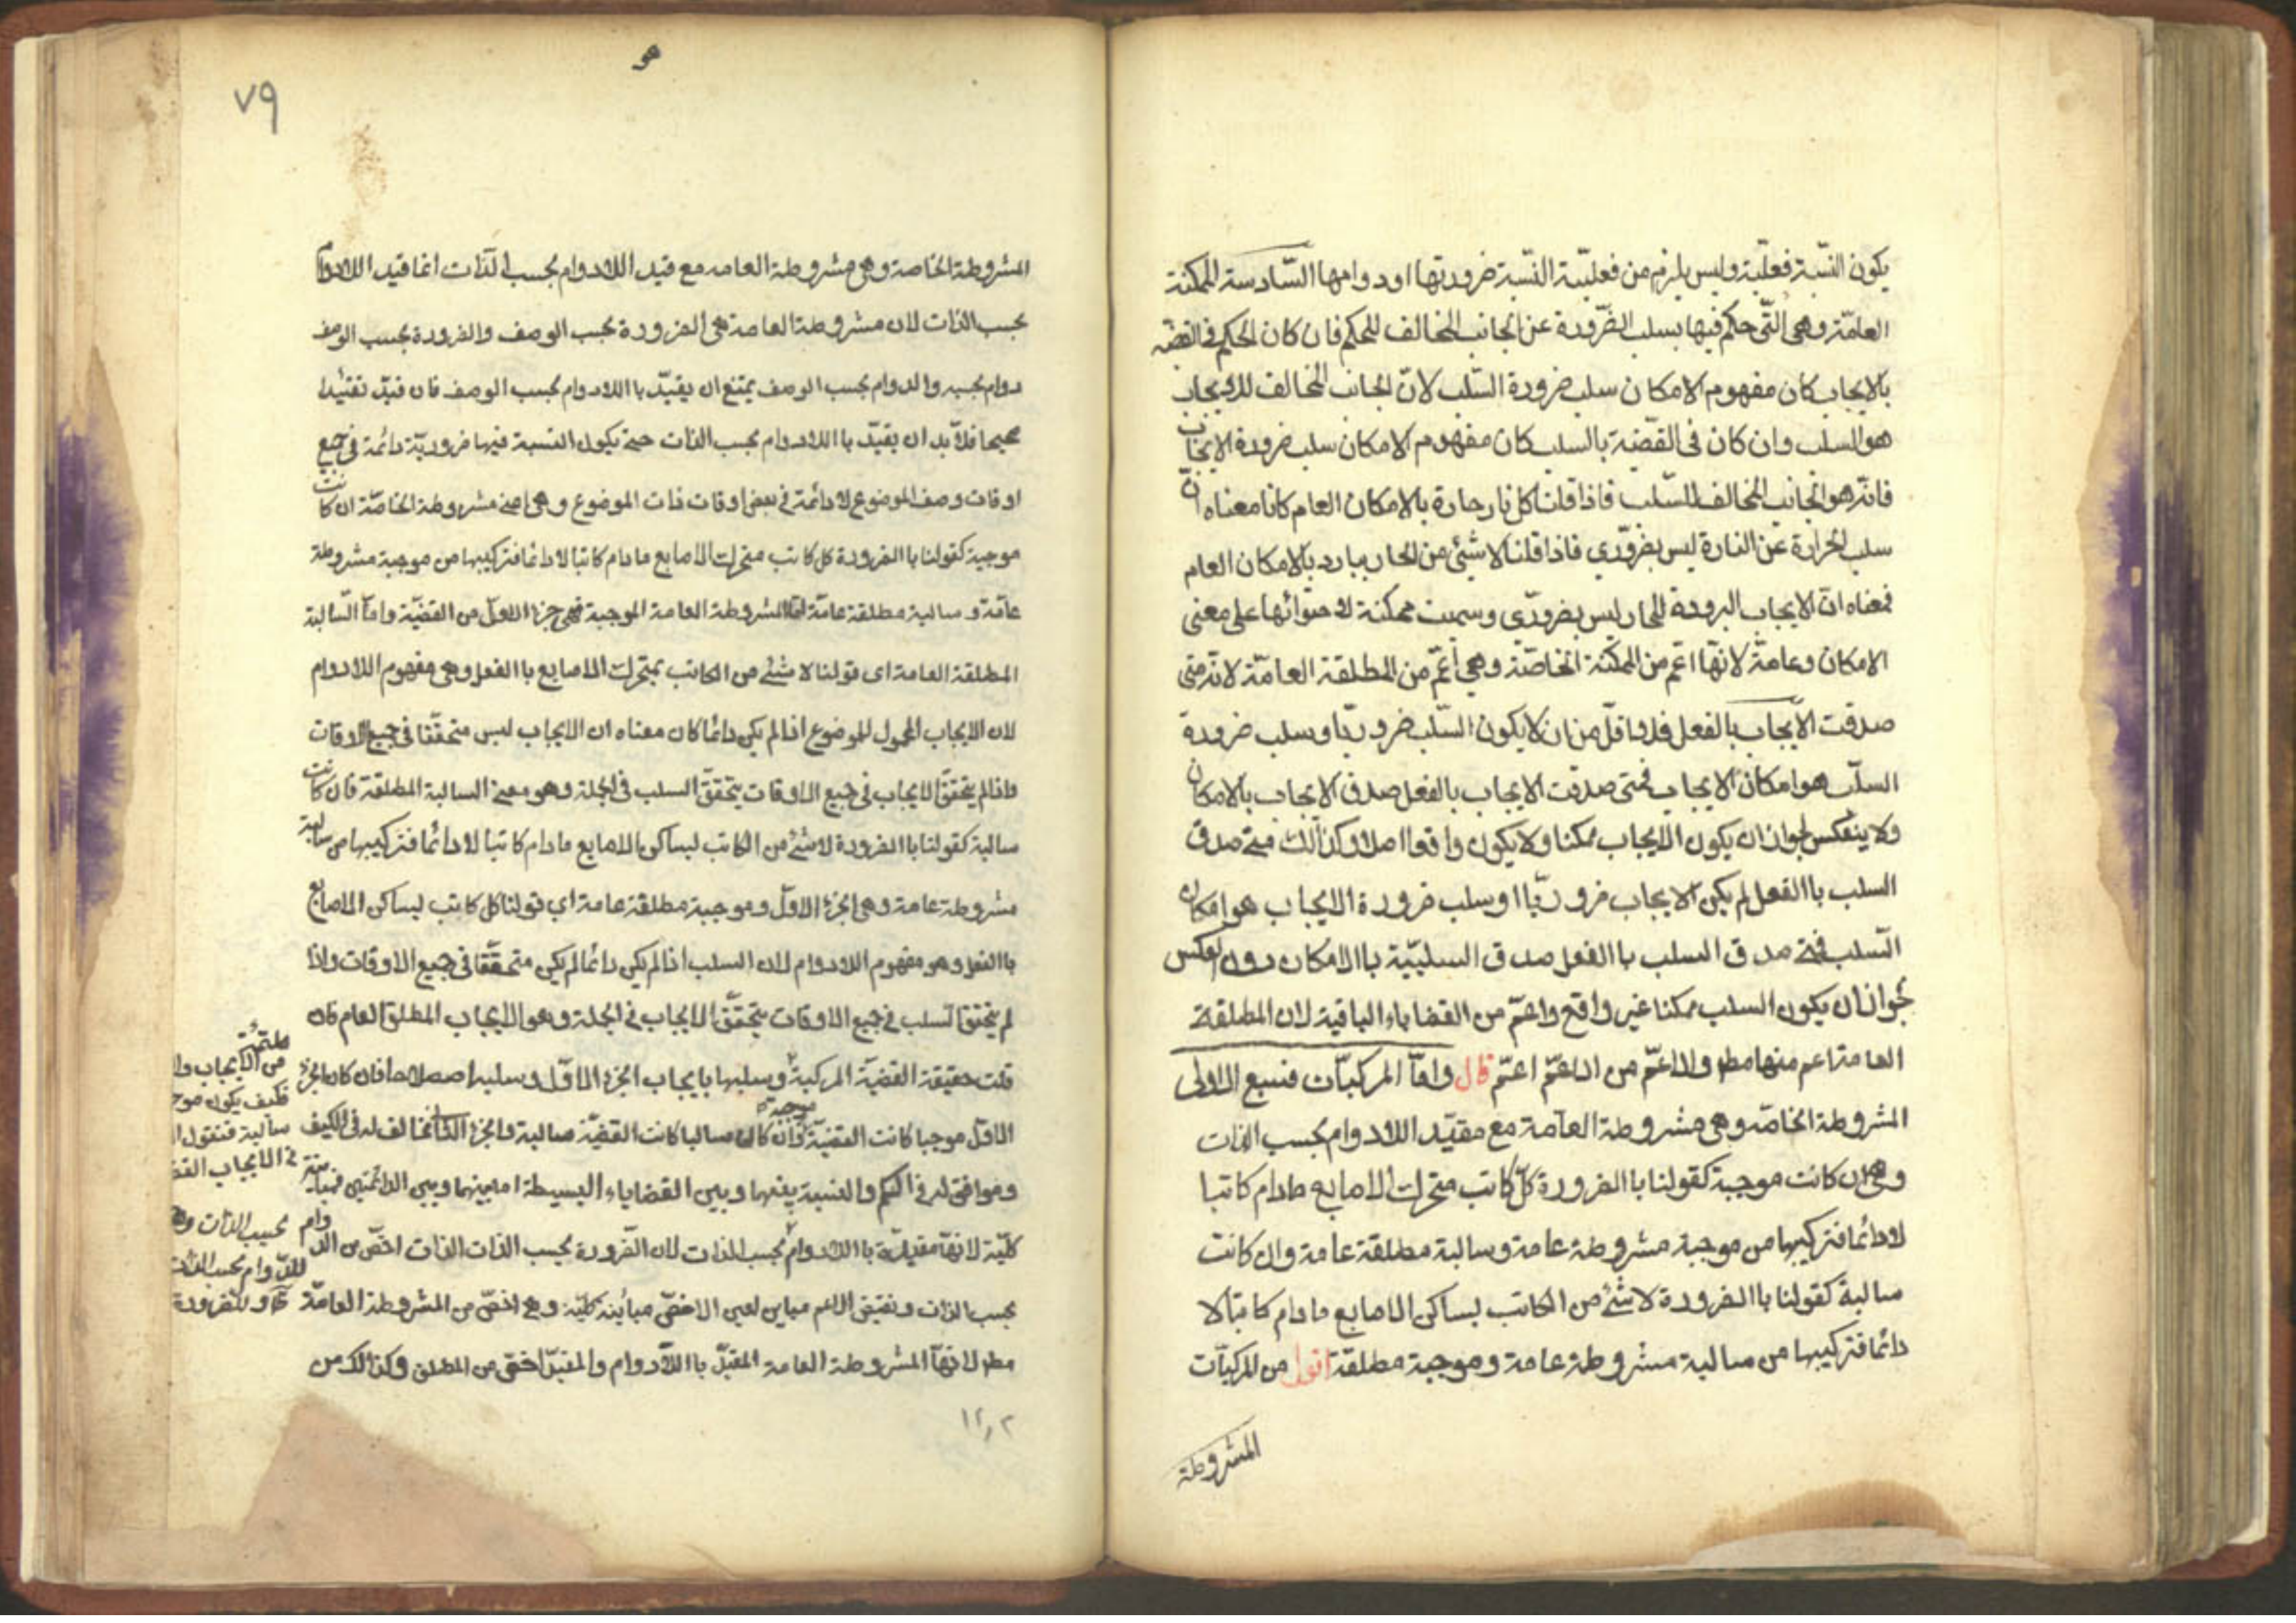 يكون النسبة فعلية وليس يلزم من فعلية النسبة ضرورتها او دوامها السادسة الممكنة
العامة وهى التى حكم فيها بسلب الضرورة عن الجانب المخالف للحكم فان كان الحكم فى القضية
بالايجاب كان مفهوم الامكان سلب ضرورة السلب لان الجانب المخالف للايجاب
هو السلب وان كان فى القضية بالسلب كان مفهوم الامكان سلب ضرورة الايجاب
فانه هو الجانب المخالف للسلب فاذا قلنا كل نار حارة بالامكان العام كانا معناه ان
سلب الحرارة عن النارة ليس بضرورى فاذا قلنا لا شئ من الحار ببارد بالامكان العام
فمعناه ان الايجاب البرودة للحار ليس بضرورى وسميت ممكنة لاحتوائها على معنى
الامكان وعامة لانها اعم من الممكنة الخاصة وهى أعم من المطلقة العامة لانه متى
صدقت الايجاب بالفعل فلا اقل من ان لا يكون السلب ضروريا وسلب ضرورة
السلب هو امكان الايجاب فمتى صدقت الايجاب بالفعل صدق الايجاب بالامكان
ولا ينعكس لجواز ان يكون الايجاب ممكنا ولا يكون واقعا اصلا وكذلك متى صدق
السلب باالفعل لم يكن الايجاب ضروريا اوسلب ضرورة الايجاب هو امكان
السلب فمتى صدق السلب باالفعل صدق السلبية باالامكان دون العكس
لجواز ان يكون السلب ممكنا غير واقع واعم من القضاياء الباقية لان المطلقة
العامة اعم منها مطر والاعم من الاعم اعم قال واما المركبات فسبع الاولى
المشروطة الخاصة وهى مشروطة العامة مع مقيد اللادوام بحسب الذات
وهى ان كانت موجبة كقولنا باالضرورة كل كاتب متحرك الاصابع مادام كاتبا
لادائما فتركيبها من موجبة مشروطة عامة وسالبة مطلقة عامة وان كانت
سالبة كقولنا باالضرورة لا شئ من الكاتب بساكن الاصابع مادام كاتبا لا
دائما فتركيبها من سالبة مشروطة عامة وموجبة مطلقة اقول من المركبات
المشروطة
هو
٧٩
المشروطة الخاصة وهى مشروطة العامه مع قيد اللادوام بحسب الذات انما قيد اللادوام
بحسب الذات لان مشروطة العامة هى الضرورة بحسب الوصف والضرورة بحسب الوصف
دوام بحسبه والدوام بحسب الوصف يمتنع ان يقيد باللادوام بحسب الوصف فان قيد تقييدا
صحيحا فلابد ان يقيد باللادوام بحسب الذات حتى يكون النسبة فيها ضرورية دائمة فى جميع
اوقات وصف الموضوع لا دائمة فى بعض اوقات ذات الموضوع وهى اعنى مشروطة الخاصة ان كانت
موجبة كقولنا باالضرورة كل كاتب متحرك الاصابع مادام كاتبا لا دائما فتركيبها من موجبة مشروطة
عامة وسالبة مطلقة عامة اما المشروطة العامة الموجبة فهى جزء الاول من القضية واما السالبة
المطلقة العامة اى قولنا لا شئ من الكاتب بمتحرك الاصابع باالفعل وهى مفهوم اللادوام
لان الايجاب المحمول للموضوع اذا لم يكن دائما كان معناه ان الايجاب ليس متحققا فى جميع الاوقات
واذا لم يتحقق الايجاب فى جميع الاوقات يتحقق السلب فى الجملة وهو معنى السالبة المطلقة فان كانت
سالبة كقولنا باالضرورة لا شئ من الكاتب بساكن الاصابع مادام كاتبا لا دائما فتركيبها من سالبة
مشروطة عامة وهى الجزء الاول وموجبة مطلقة عامة اى قولنا كل كاتب بساكن الاصابع
باالفعل وهو مفهوم اللادوام لان السلب اذا لم يكن دائما لم يكن متحققا فى جميع الاوقات واذا
لم يتحقق السلب فى جميع الاوقات يتحقق الايجاب فى الجملة وهو الايجاب المطلق العام فان
قلت حقيقة القضية المركبة ملتئمة من الايجاب وا
فكيف يكون موج
سالبة فنقول ا
فى الايجاب القض
وسلبها بايجاب الجزء الاول وسلبه اصطلاحا فان كان الجزء
الاول موجبا كانت القضية موجبة وان كان سالبا كانت القضية سالبة والجزء الثانى مخالف له فى الكيف
وموافق له فى الكم والنسبة بينها وبين القضاياء البسيطة اما بينها وبين الدائمتين فمباينة
كلية لانها مقيدة باللادوام بحسب الذات لان الضرورة بحسب الذات الذات اخص من الدوام
بحسب الذات و
للدوام بحسب الذات
بحسب الذات ونقيض الاعم مباين لعين الاخص مباينة كلية وهى اخص من المشروطة العامة
مطر لانها المشروطة العامة المقيد باللادوام والمقيد اخص من المطلق وكذالك من
١٢٫٢